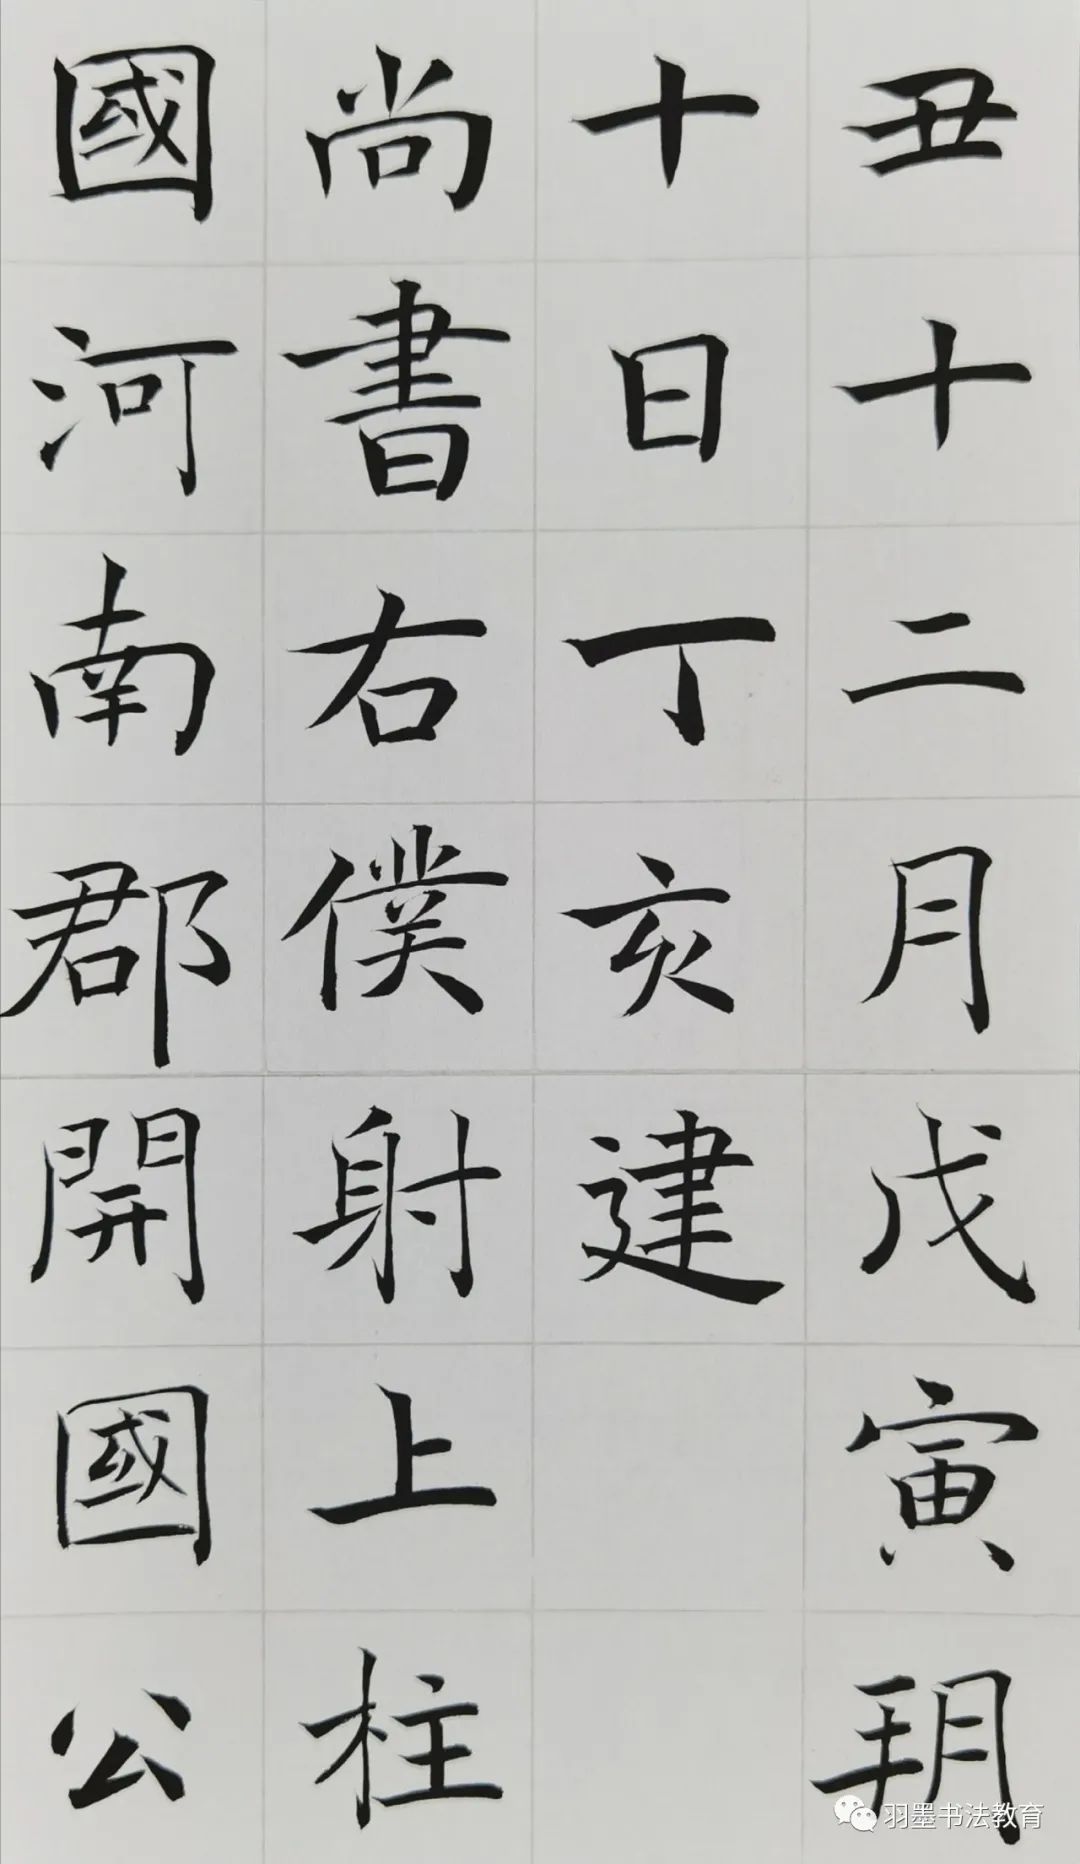 丑十二月戊寅玥
十日丁亥建
尚書右僕射上柱
國河南郡開國公
羽墨书法教育